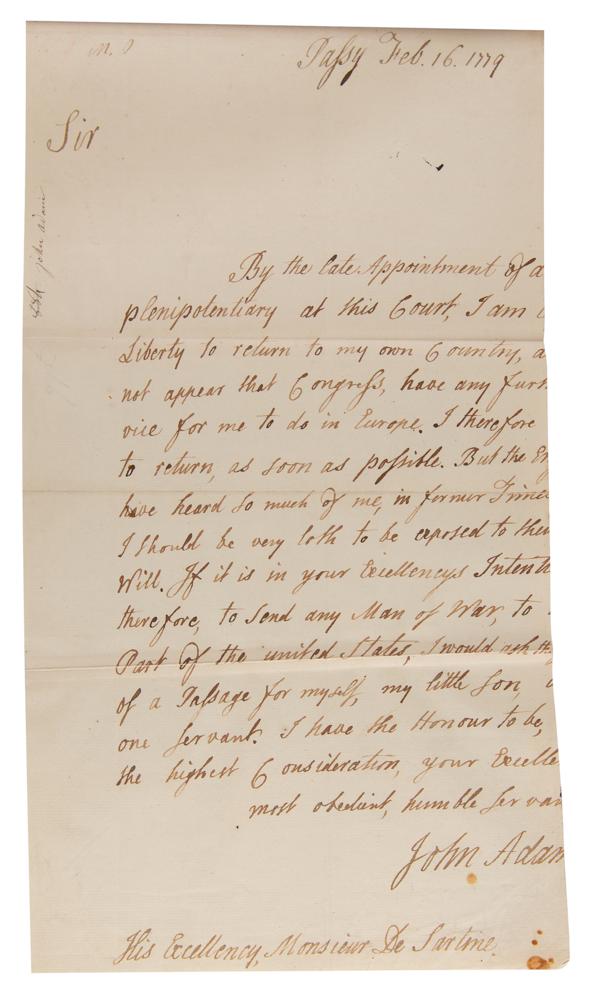 Passy Feb. 16. 1779
Sir
By the late Appointment of a
plenipotentiary at this Court, I am
Liberty to return to my own Country, a
not appear that Congress, have any furth
vice for me to do in Europe. I therefore
to return, as soon as possible. But the En
have heard so much of me, in former Times
I should be very loth to be exposed to their
Will. If it is in your Excellencys Intenti
therefore, to send any Man of War, to
Part of the united States, I would ask th
of a Passage for myself, my little son,
one servant. I have the Honour to be,
the highest Consideration, your Excelle
most obedient, humble servan
John Adam
His Excellency, Monsieur De Sartine.
john adams